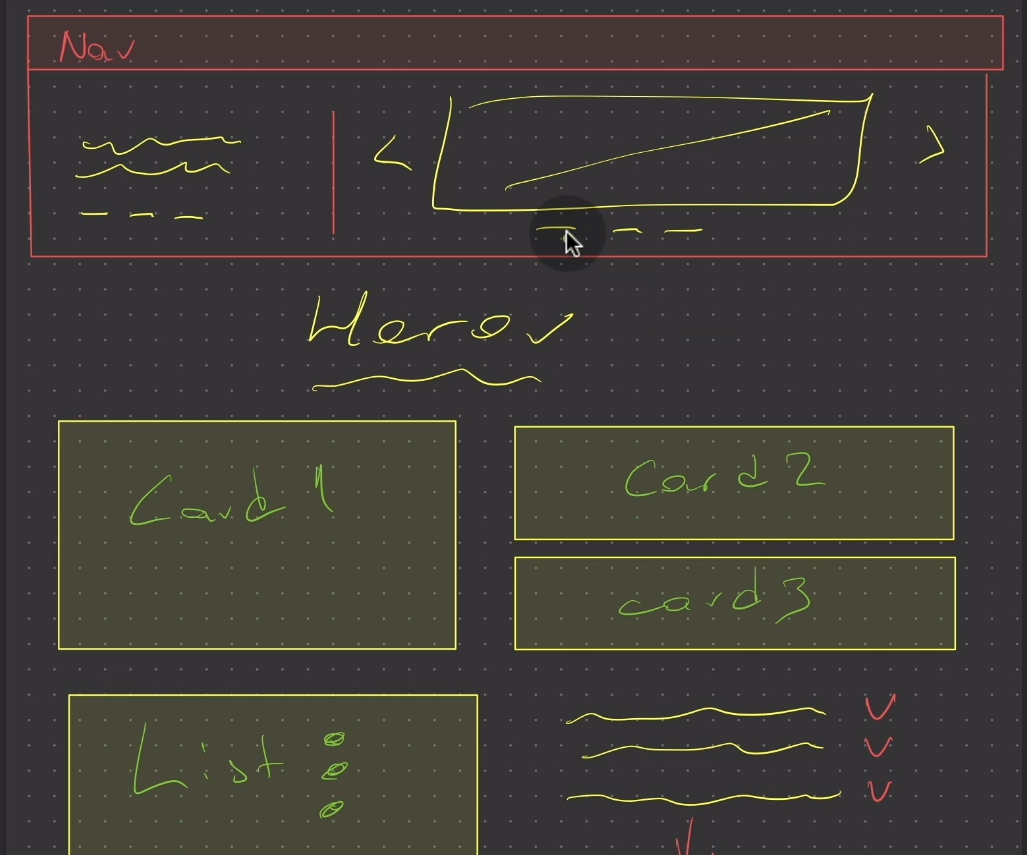 Nav
Hero
Card 1
Card 2
card 3
List